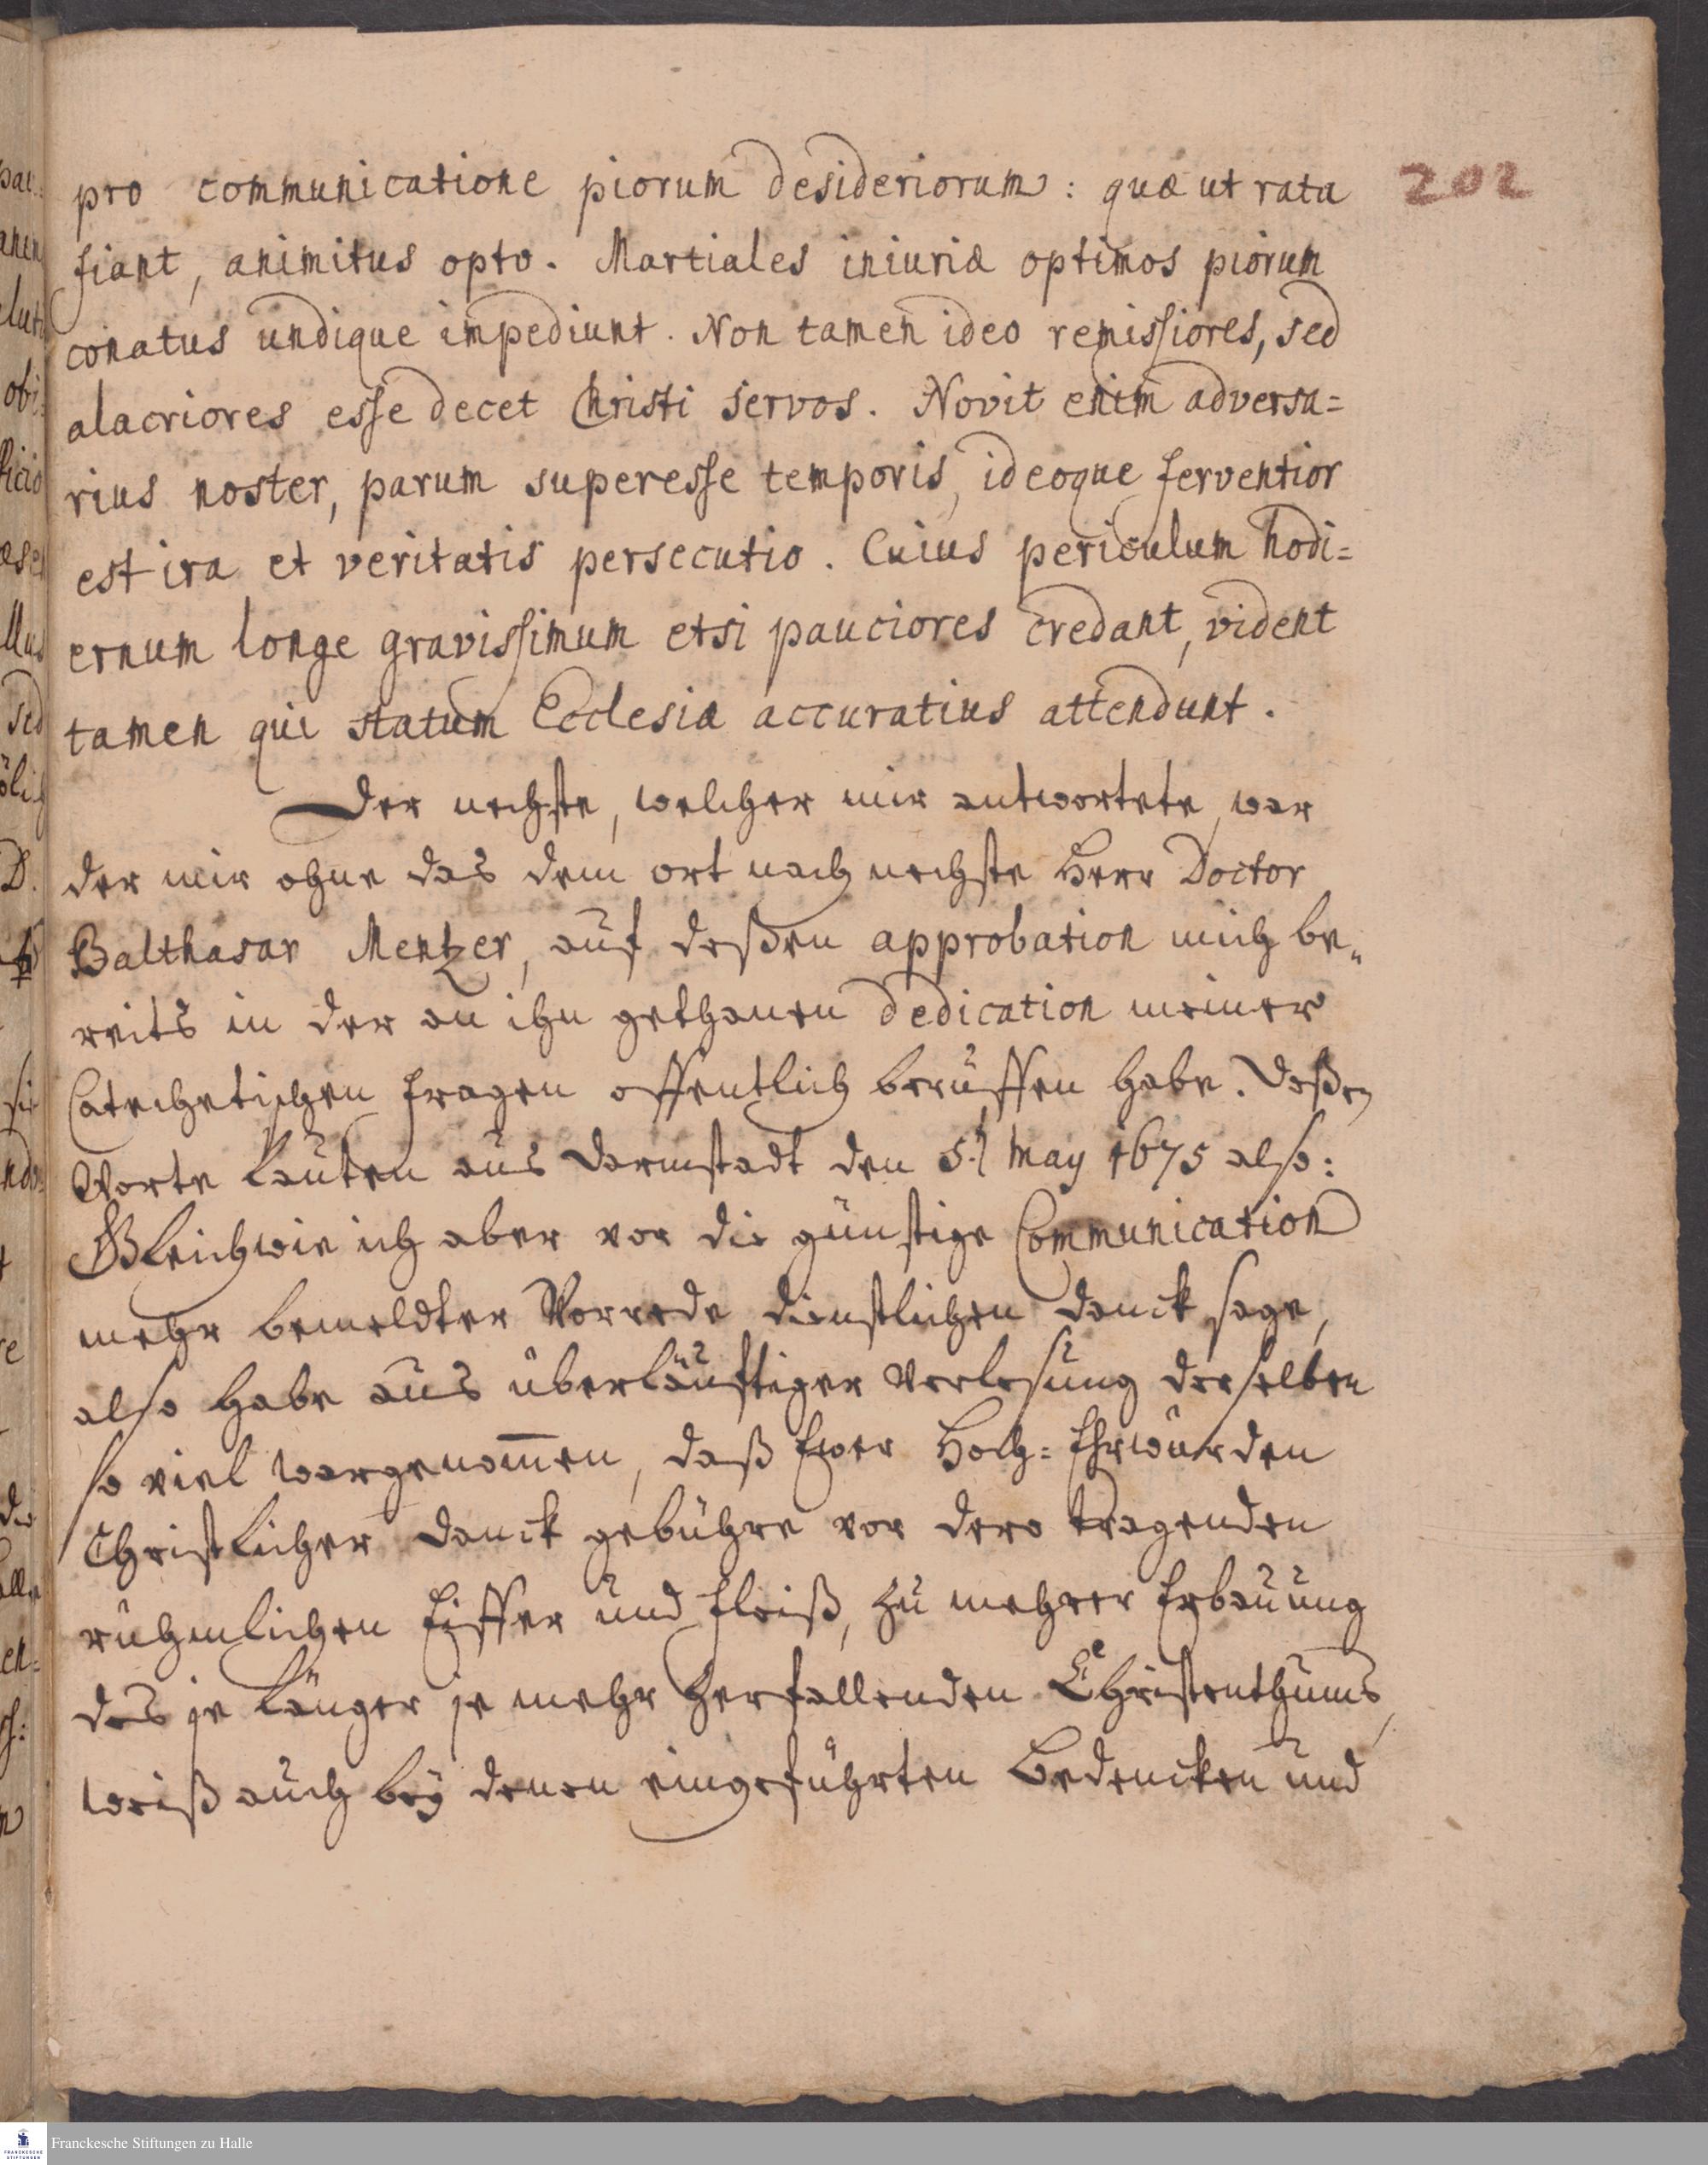 202
pro communicatione piorum desideriorum: quæ ut rata
fiant, animitus opto. Martiales iniuriæ optimos piorum
conatus undique impediunt. Non tamen ideo remissiores, sed
alacriores esse decet Christi servos. Novit enim adversa=
rius noster, parum superesse temporis, ideoque ferventior
est ira et veritatis persecutio. Cuius periculum hodi=
ernum longe gravissimum etsi pauciores credant, vident
tamen qui statum Ecclesiæ accuratius attendunt.
Der nechste, welcher mir antwortete, war
der mir ohne das dem ort nach nechste Herr Doctor
Balthasar Mentzer, auf deßen approbation mich be„
reits in der an ihn gethanen Dedication meiner
Catechetischen fragen offentlich beruffen habe. Deßen
Worte lauten aus Darmstadt den 5. May 1675 also:
Gleichwie ich aber vor die günstige Communication
mehr bemeldter Vorrede dienstlichen Danck sage,
also habe aus überläuftiger Verlesung derselben
so viel wargenom̅en, daß Ewer Hoch=Ehrwürden
Christlicher Danck gebühre vor dero tragenden
rühmlichen Eiffer und fleiß, zu mehrer Erbauung
des je länger je mehr zerfallenden Christenthums,
weiß auch bey denen eingeführten Bedencken und
Franckesche Stiftungen zu Halle